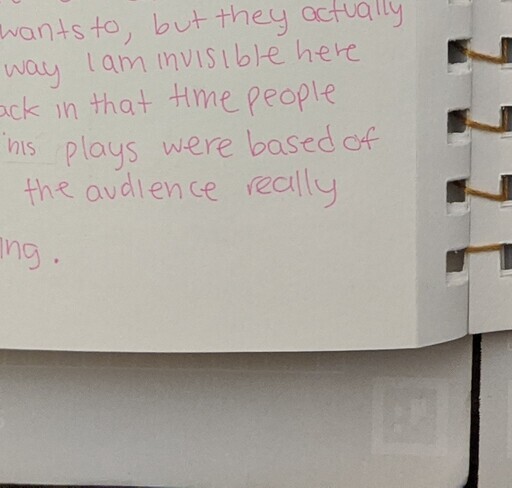 wants to, but they actually
way I am invisible here
ack in that time people
his plays were based of
the audience really
ing.